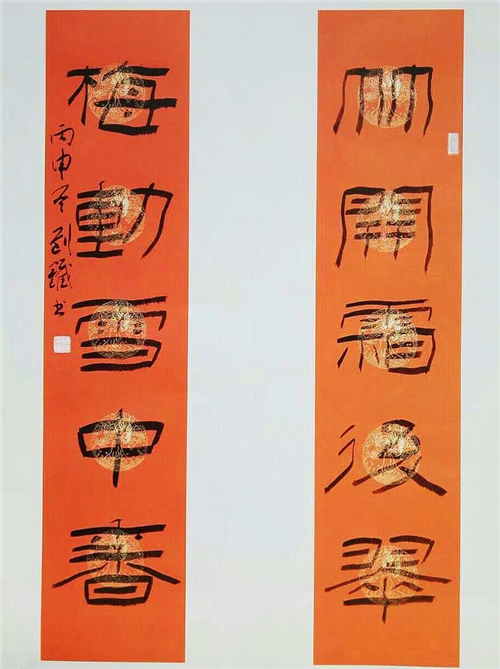 竹開霜後翠
梅動雪中香
丙申 刘鐵书